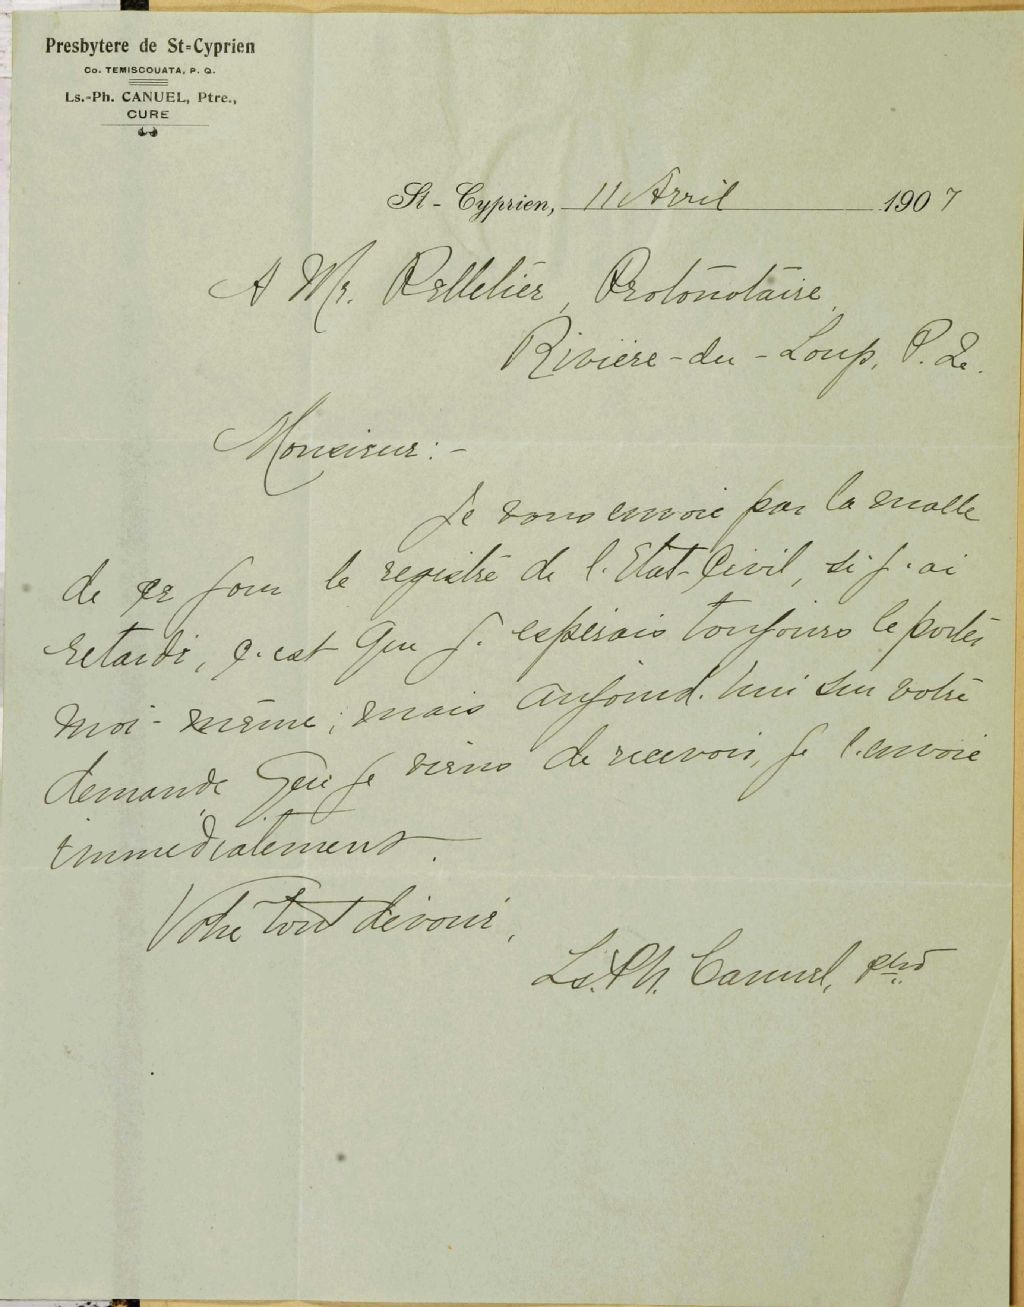 Presbytere de St-Cyprien
Co. TEMISCOUATA, P. Q.
Ls.-Ph. CANUEL, Ptre.,
CURE
St-Cyprien, 11 Avril 1907
A Mr. Pelletier, Protonotaire,
Rivière-du-Loup, P. Q.
Monsieur:-
Je vous envoie par la malle
de ce jour le registre de l'Etat-Civil, si j'ai
retardé, c'est que j'espérais toujours le porter
moi-même; mais aujourd'hui sur votre
demande que je viens de recevoir, je l'envoie
immédiatement.
Votre tout dévoué,
Ls. Ph. Canuel, ptre